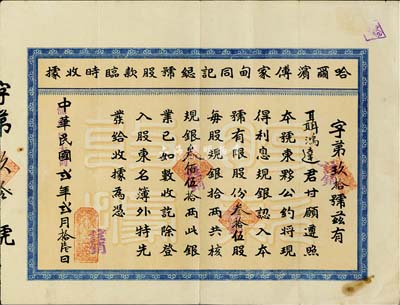 哈爾濱傅家甸同記總號股款臨時收據
字第玖拾號茲有
聶鴻達君甘願遵照
本號東夥公約將現
得利息現銀認入本
號有限股份叁拾伍股
每股現銀拾兩共核
現銀叁佰伍拾兩此銀
業已如數收訖除登
入股東名簿外特先
發給收據為憑
中華民國貳年貳月拾陸日
字第玖拾號